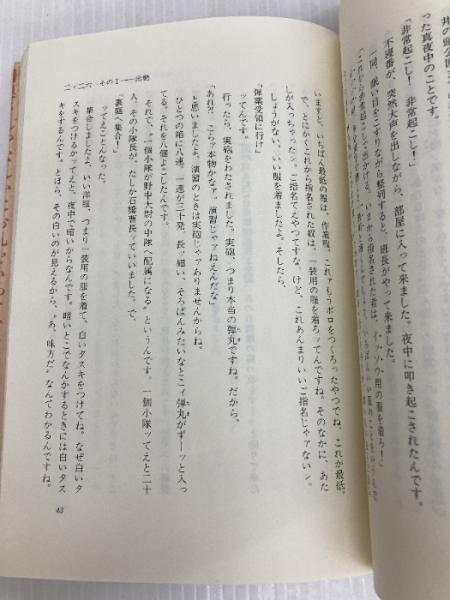 井の頭公園
った真夜中のことです。
「非常起こし! 非常起こし!」
不寝番が、突然大声を出しながら、部屋に入って来ました。夜中に叩き起こされたんです。
一同、眠い目をこすりながら整列すると、班長がやって来ました。
いまから指名された者は、イッソウ用の服を着ろ!」
いますと、いちばん最低の服は、作業服、これァもうボロをつくろったやつでね、これが最低
で、とにかくこれから指名された奴は、一装用の服を着ろッてんですね。そのなかに、あた
しが入っちゃったン。ご指名てえやつですな。けど、これあんまりいいご指名じゃァないン。
しょうがない、いい服を着ましたよ。そしたら、
「弾薬受領に行け」
ッてんす。
行ったら、実砲をわたされました。実砲、つまり本当の弾丸ですね。だから、
「あれ?! こらァ本物かなァ。演習じゃァねえんだな」
と思いましたよ。演習のときは実砲じゃァありませんからね。
ひとつの箱に八連、一連が三十発、長ッ細い、そろばんみたいなとこィ弾丸がずーッと入っ
てる。それを八個よこしたんです。
それで、〝一個小隊が野中大尉の中隊へ配属になる〟というんです。一個小隊ッてえと二十
人。その小隊長が、たしか石橋曹長ッていいました、で、
「裏庭へ集合!」
ッてえことんなった。
集合しましたよ、いい洋服、つまり一装用の服を着て、白いタスキをつけてね。なぜ白いタ
スキをつけるかッてえッと、夜中で暗いからなんです。暗いとこでなんかするときには白いタス
キをするんです。とほら、その白いのが見えるから、〝あ、味方だ〟なんてわかるんですね。
二・二六 その1――出動
43